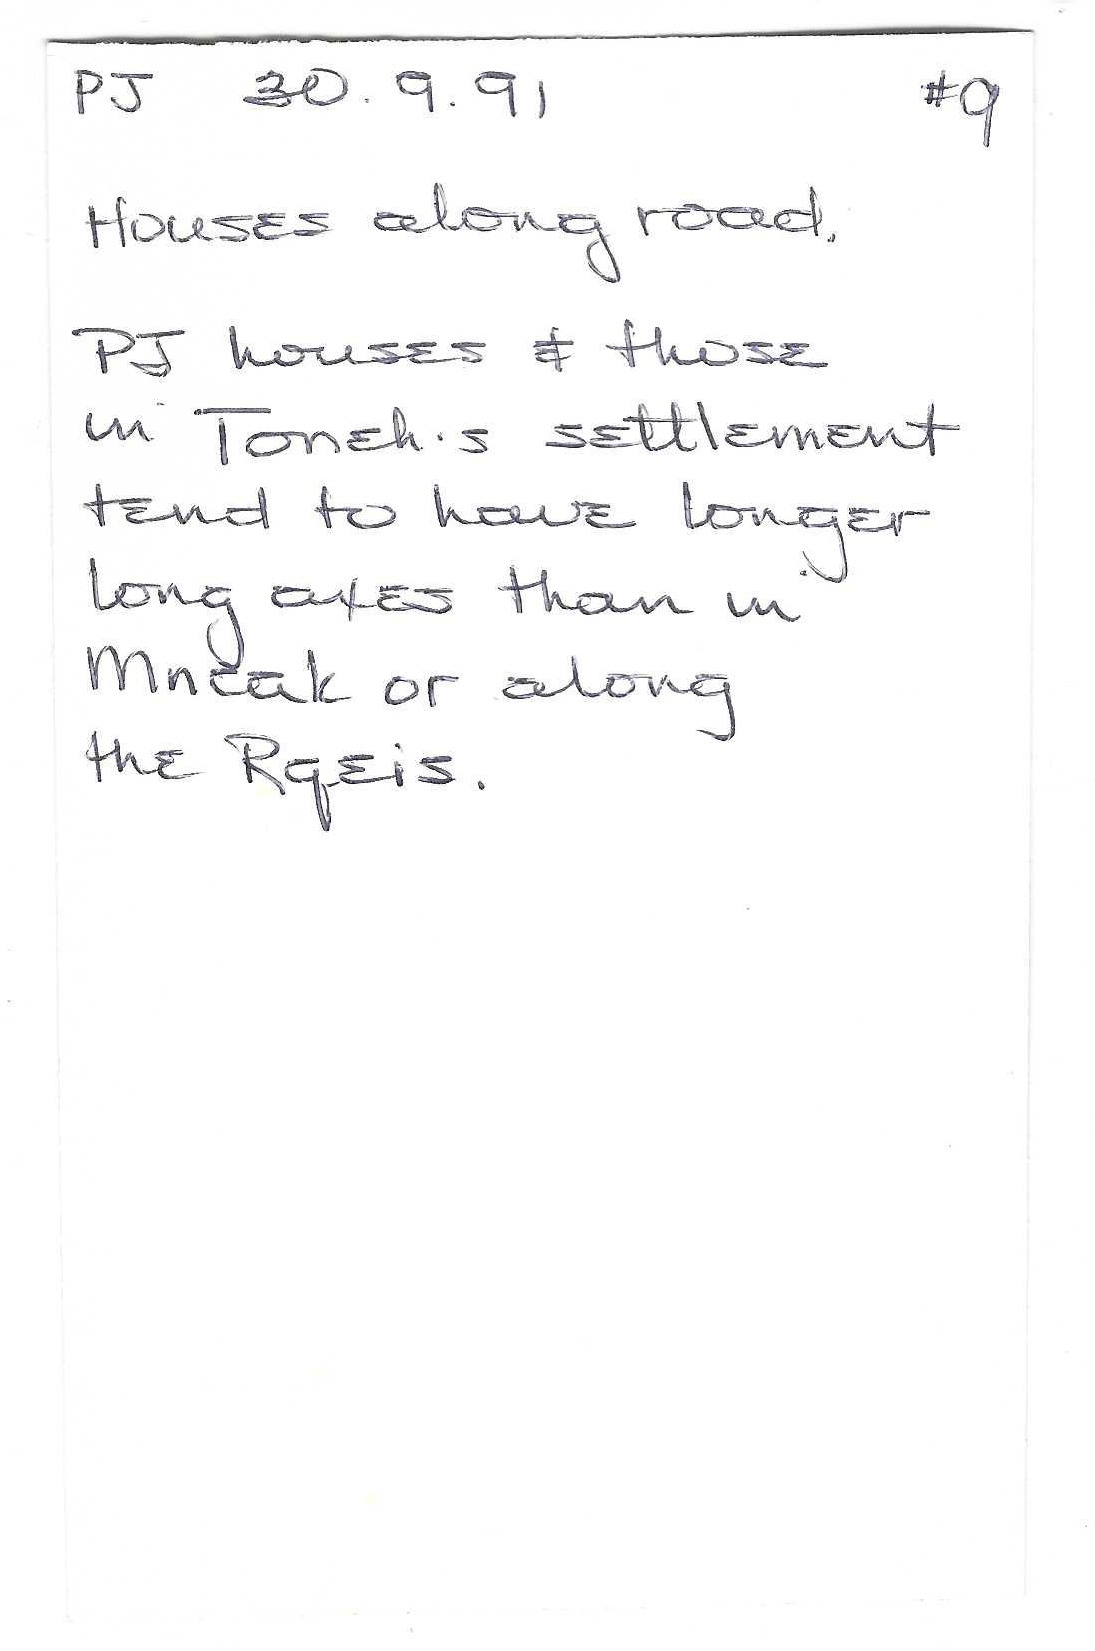 PJ 30.9.91 #9
Houses along road.
PJ houses & those
in Toneh's settlement
tend to have longer
long axes than in
Mncak or along
the Rqeis.